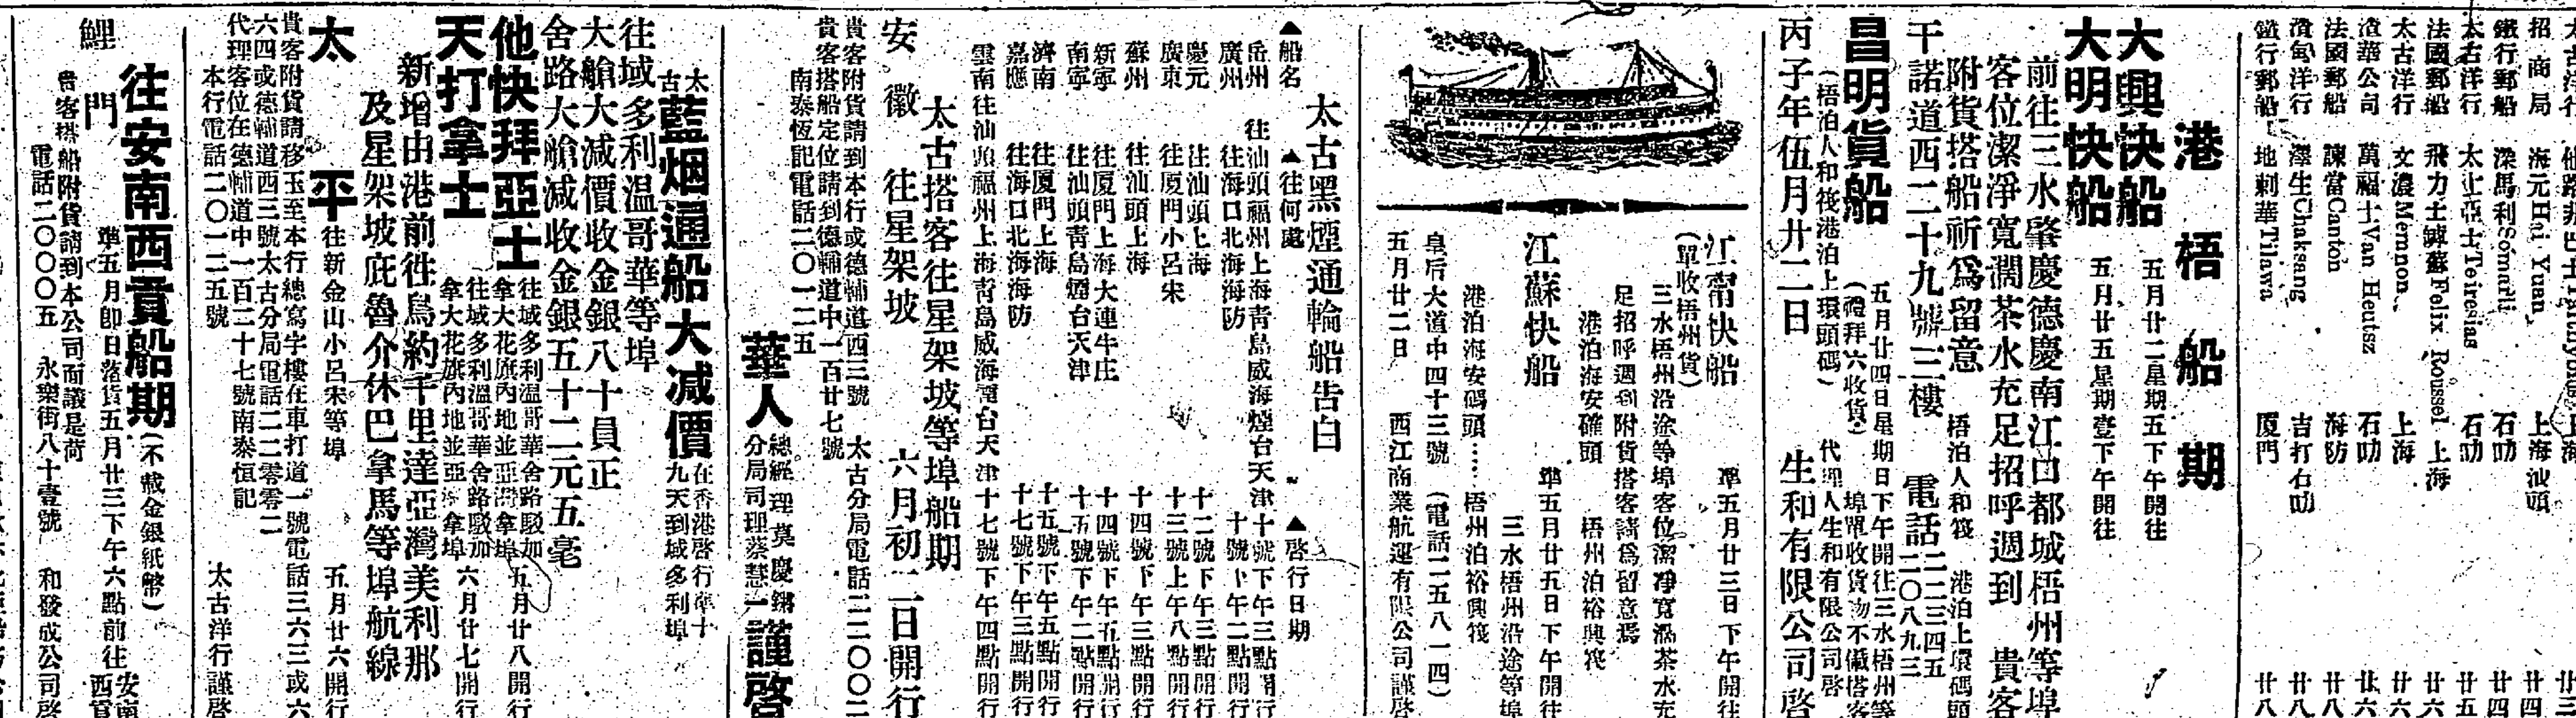 招商局 海元Hai Yuan 上海汕頭 廿四
鐵行郵船 梁馬利Somarli 石叻 廿四
太古洋行 太上亞士Teiresias 石叻 廿五
法國郵船 飛力士罅蘇Felix Roussel 上海 廿六
太古洋行 文濃Memnon 上海 廿六
渣華公司 萬福士Van Heutsz 石叻 廿六
法國郵船 諫當Canton 海防 廿八
渣甸洋行 澤生Chaksang 吉打石叻 廿八
鐵行郵船 地剌華Tilawa 厦門 廿八
港梧船期
大興快船 五月廿二星期五下午開往
大明快船 五月廿五星期壹下午開往
前往三水肇慶德慶南江口都城梧州等埠
客位潔淨寬濶茶水充足招呼週到 貴客
附貨搭船祈爲留意 梧泊人和筏 港泊上環碼頭
干諾道西二十九號三樓 電話二二三四五 二〇八九三
昌明貨船 五月廿四日星期日下午開往三水梧州等
(禮拜六收貨) 埠單收貨物不儎搭客
(梧泊人和筏港泊上環頭碼) 代理人生和有限公司啓
丙子年伍月廿二日 生和有限公司啓
江甯快船 準五月廿三日下午開往
(單收梧州貨)
三水梧州沿途等埠客位潔凈寬濶茶水充
足招呼週到附貨搭客請爲留意焉
港泊海安碼頭 梧州泊裕興筏
江蘇快船 準五月廿五日下午開往
三水梧州沿途等埠
港泊海安碼頭……梧州泊裕興筏
皇后大道中四十三號 (電話二五八一四)
五月廿二日 西江商業航運有限公司謹啓
太古黑煙通輪船告白
▲船名 ▲往何處 ▲啓行日期
岳州 往汕頭福州上海靑島威海煙台天津 十號下午三點開行
廣州 往海口北海海防 十號下午二點開行
慶元 往汕頭上海 十二號下午三點開行
廣東 往厦門小呂宋 十三號上午八點開行
蘇州 往汕頭上海 十四號下午三點開行
新寧 往厦門上海大連牛庄 十四號下午五點開行
南寧 往汕頭靑島煙台天津 十五號下午二點開行
濟南 往厦門上海 十五號下午五點開行
嘉應 往海口北海海防 十七號下午三點開行
雲南 往汕頭福州上海靑島威海煙台天津 十七號下午四點開行
太古搭客往星架坡等埠船期
安徽 往星架坡 六月初二日開行
貴客附貨請到本行或德輔道西三號 太古分局電話二二〇〇二
貴客搭船定位請到德輔道中一百廿七號
南泰恆記電話二〇一二五
華人 總經理莫慶鏘 分局司理蔡慧一 謹啓
太古藍烟通船大減價 在香港啓行準十九天到域多利埠
往域多利温哥華等埠
大艙大減價收金銀八十員正
舍路大艙減收金銀五十二元五毫
他快拜亞士 往域多利溫哥華舍路駁加拿大花旗內地並亞灣拿埠 五月廿八開行
天打拿士 往域多利溫哥華舍路駁加拿大花旗內地並亞灣拿埠 六月廿七開行
新增由港前往鳥約千里達亞灣美利那
及星架坡庇魯介休巴拿馬等埠航線
太平 往新金山小呂宋等埠 五月廿六開行
貴客附貨請移玉至本行總寫字樓在車打道一號電話三六三或六
六四或德輔道西三號太古分局電話二二零零二
代理客位在德輔道中一百三十七號南泰恒記
本行電話二〇一二五號 太古洋行謹啓
往安南西貢船期 (不儎金銀紙幣)
鯉門 準五月卽日落貨五月廿三下午六點前往安南西貢
貴客搭船附貨請到本公司面議是荷
電話二〇〇〇五 永樂街八十壹號 和發成公司啓